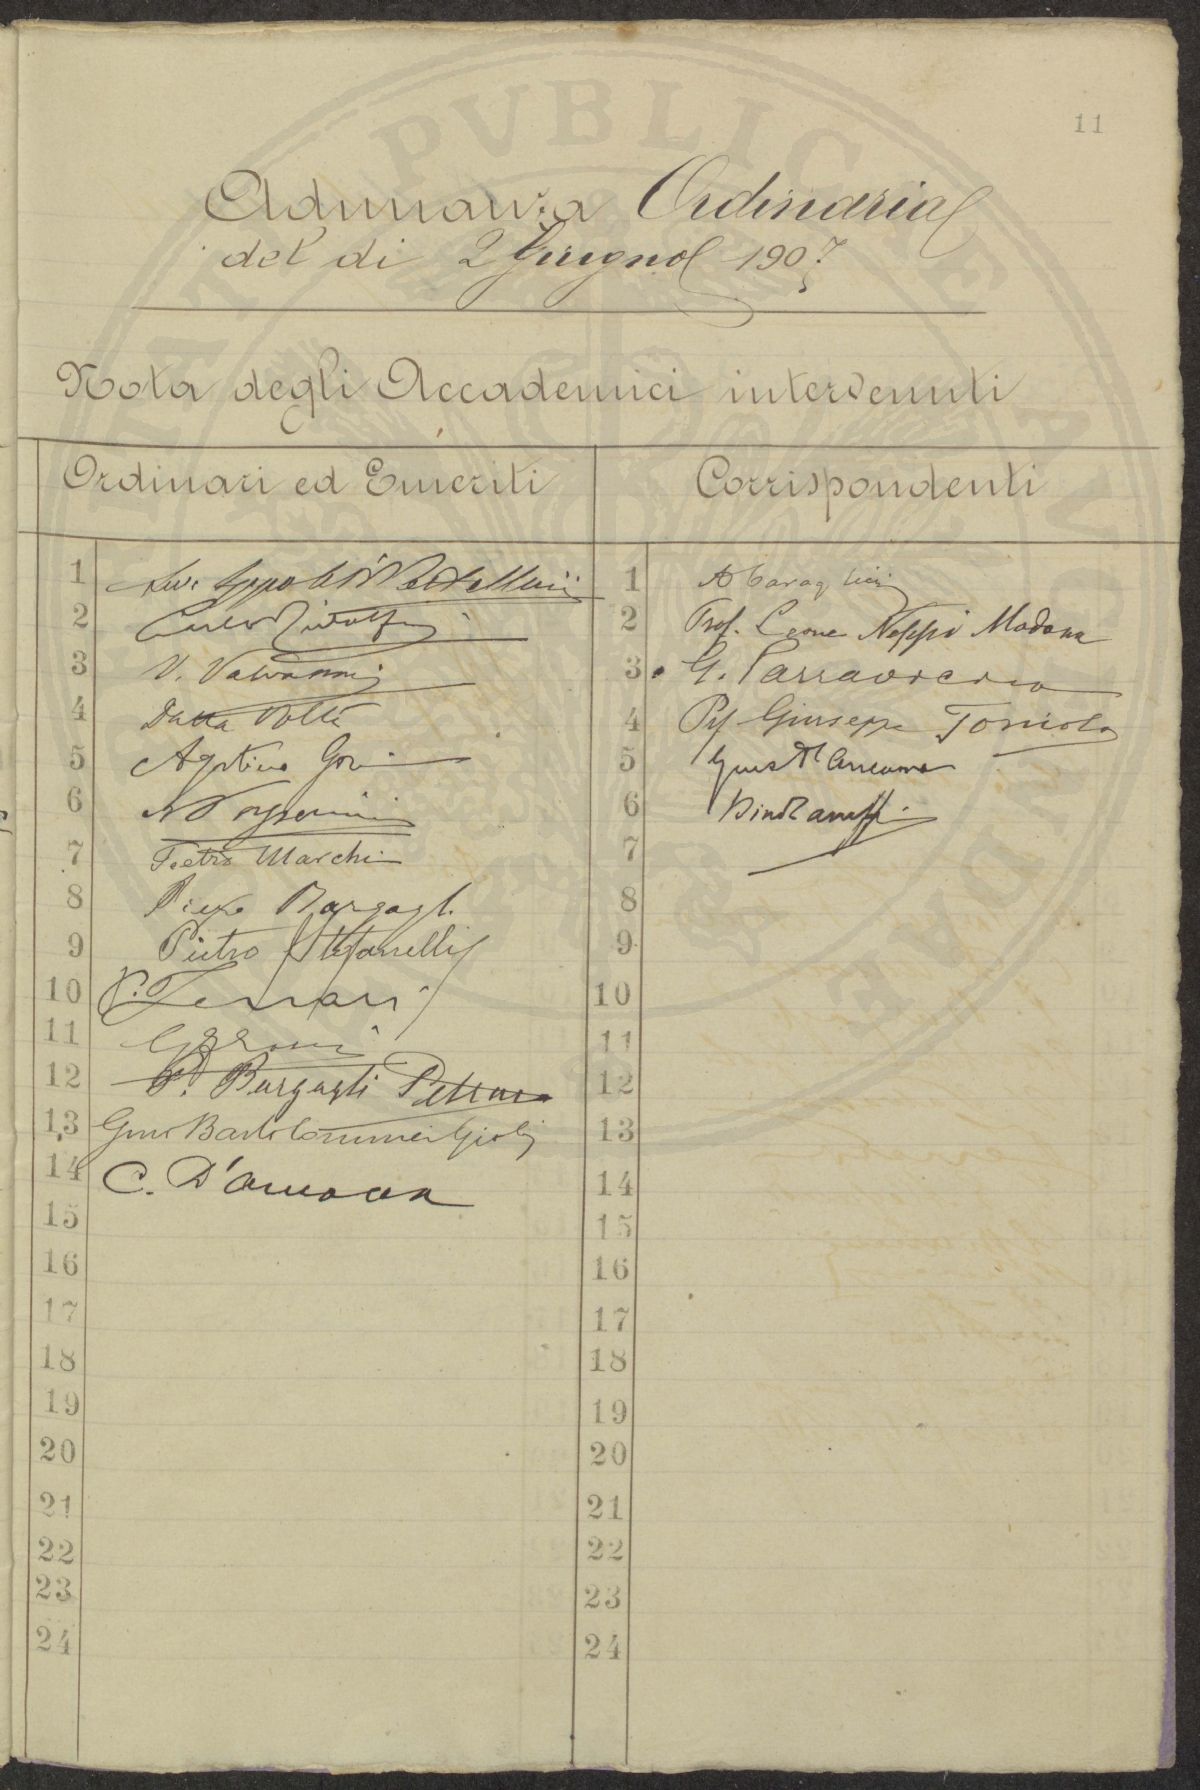 11
Adunanza Ordinaria
del dì 2 Giugno 1907
Nota degli Accademici intervenuti
Ordinari ed Emeriti
Corrispondenti
1
2 Carlo Ridolfi
3 V. Valvassori
4 Dalla Volta
5 Agostino Gori
6
7 Pietro Marchi
8 Piero Bargagli
9 Pietro Stefanelli
10 P. Ferrari
11
12 P. Bargagli Petrucci
13 Gino Bartolommei Gioli
14 C. D'Ancona
15
16
17
18
19
20
21
22
23
24
1
2 Prof. Leone Neppi Modona
3 G. Parravicino
4 Prf Giuseppe Toniolo
5
6
7
8
9
10
11
12
13
14
15
16
17
18
19
20
21
22
23
24